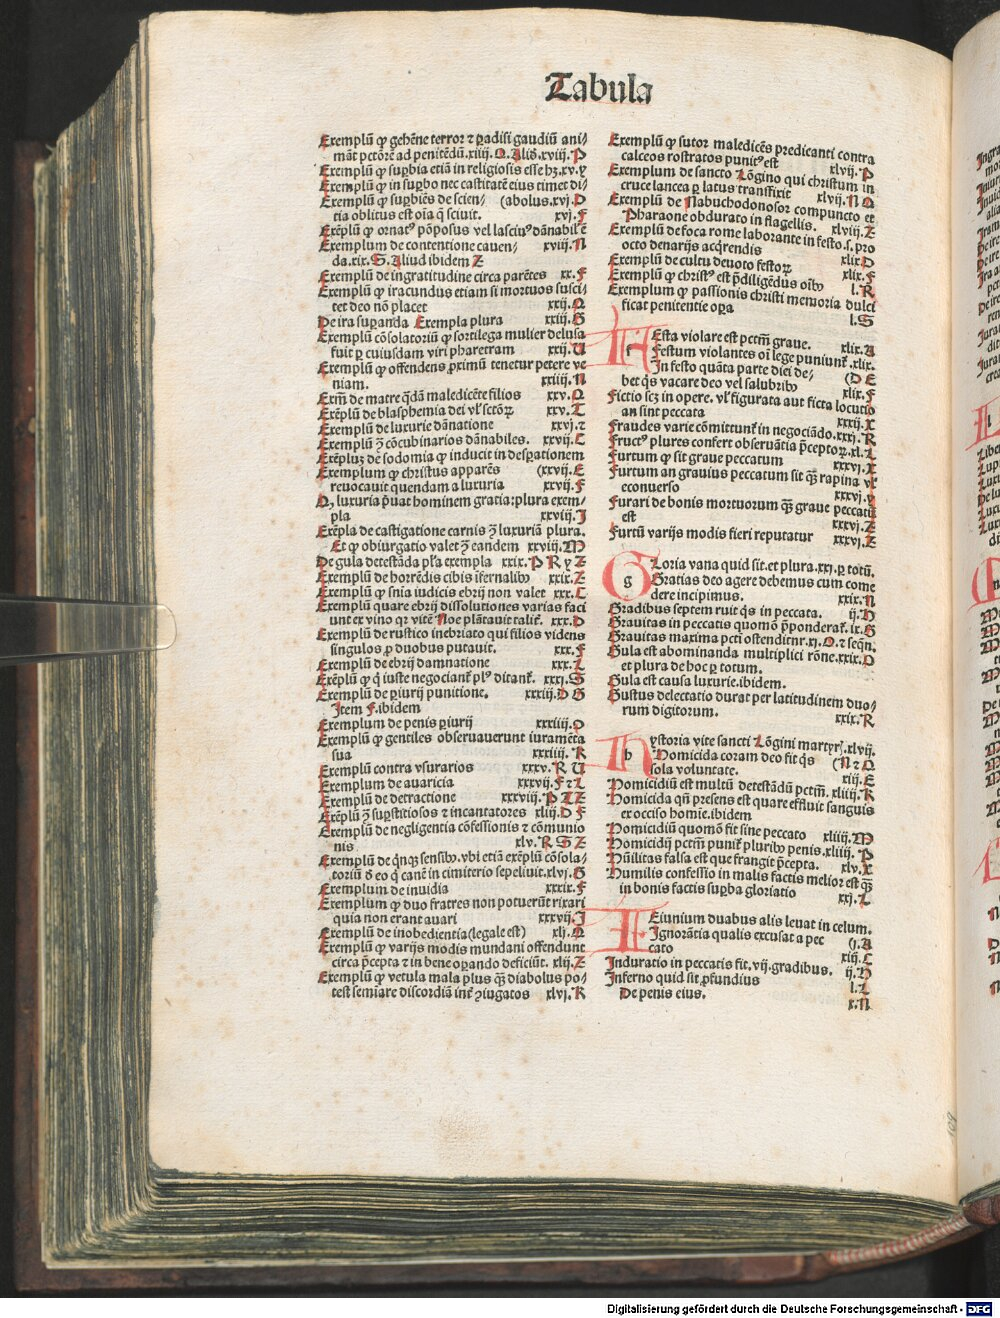 Tabula
Exemplū ꝙ gehēne terror ⁊ ꝑadisi gaudiū ani⸗
māt pctōrē ad penitēdū.xiiij.O.Aliđ.xviij.P
Exemplū ꝙ suꝑbia etiā in religiosis esse hꝫ.xv.y
Exemplū ꝙ in suꝑbo nec castitatē eius timet di⸗
Exemplū ꝙ suꝑbiēs de scien⸗ (abolus.xvj.D
tia oblitus est oīa ꝙ sciuit. xvj.F
Exēplū ꝙ ornatꝰ p̄posus vel lasciuꝰ dānabil'ē
Exemplum de contentione cauen⸗ xviij.N
da.xix.S.Aliud ibidem Z
Exemplū de ingratitudine circa parētes xx.F
Exemplū ꝙ iracundus etiam si mortuos susci⸗
tet deo nō placet xxij.Q
De ira suꝑanda Exempla plura xxij.G
Exemplū cōsolatoriū ꝙ sortilega mulier delusa
fuit ꝑ cuiusdam viri pharetram xxij.U
Exemplū ꝙ offendens ꝓximū tenetur petere ve
niam. xxiij.N
Exm̄ de matre qdā maledicēte filios xxv.Q
Exēplū de blasphemia dei vl' sctōꝝ xxv.T
Exemplū de luxurie dānatione xxvj.⁊
Exemplū ꝫ cōcubinarios dānabiles. xxvij.C
Exēpluꝫ de sodomia ꝙ inducit in desꝑationem
Exemplum ꝙ christus apparēs (xxvij.E
reuocauit quendam a luxuria xxvij.F
Q, luxuria p̄uat hominem gratia:plura exem⸗
pla xxviij.J
Exēpla de castigatione carnis ꝫ luxuriā plura.
Et ꝙ obiurgatio valet ꝫ eandem xxviij.M
De gula detestāda pl'a exempla xxix.P R y Z
Exemplū de horrēdis cibis īfernalibꝰ xxix.Z
Exemplū ꝙ snīa iudicis ebrij non valet xxx.C
Exemplū quare ebrij dissolutiones varias faci
unt ex vino qr vitē Noe plātauit talit̄. xxx.D
Exemplū de rustico inebriato qui filios videns
singulos ꝓ duobus putauit. xxx.F
Exemplū de ebrij damnatione xxx.L
Exēplū ꝙ q̇ iuste negociant̄ plꝰ ditant̄. xxxj.S
Exemplū de ꝑiurij punitione. xxxiij.D G
Item F.ibidem
Exemplum de penis ꝑiurij xxxiij.O
Exemplū ꝙ gentiles obseruauerunt iuramēta
sua xxxiij.K
Exemplū contra vsurarios xxxv.R U
Exemplum de auaricia xxxvij.F ⁊ L
Exemplū de detractione xxxviij.P T Z
Exēplū ꝫ suꝑstitiosos ⁊ incantatores xlij.D F
Exemplū de negligentia cōfessionis ⁊ cōmunio
nis xlv.R S Z
Exemplū de q̇nqꝫ sensibꝰ.vbi etiā exēplū cōsola⸗
toriū đ eo q̇ canē in cimiterio sepeliuit.xlvj.G
Exemplum de inuidia xxxix.F
Exemplum ꝙ duo fratres non potuerūt rixari
quia non erant auari xxxvij.J
Exemplū de inobedientia(legale est) xlj.Q
Exemplū ꝙ varijs modis mundani offendunt
circa p̄cepta ⁊ in bene oꝑando deficiūt. xlij.Z
Exemplū ꝙ vetula mala plus q̄ꝫ diabolus po⸗
test semiare discordiā int̄ ꝯiugatos xlvj.K
Exemplū ꝙ sutor maledicēs predicanti contra
calceos rostratos punitꝰ est xlvij.P
Exemplum de sancto Lōgino qui christum in
cruce lancea ꝑ latus transfixit xlvij.N O
Exemplū de Nabuchodonosor compuncto et
Pharaone obdurato in flagellis. xlviij.Z
Exemplū de foca rome laborante in festo.s.pro
octo denarijs acq̇rendis xlix.D
Exemplū de cultu deuoto festoꝝ xlix.F
Exemplū ꝙ christꝰ est p̄diligēdus oībꝰ l.R
Exemplum ꝙ passionis christi memoria dulci
ficat penitentie oꝑa l.S
F f Esta violare est pctm̄ graue. xlix.A
Festum violantes oī lege puniunt̄.xlix.
In festo quāta parte diei de⸗ (D E
bet q̇s vacare deo vel salubribꝰ xlix.F
Fictio scꝫ in opere. vl' figurata aut ficta locutio
an sint peccata xxxij.X
Fraudes varie cōmittunt̄ in negociādo.xxxj.R
Fructꝰ plures confert obseruātia p̄ceptoꝝ.xl.L
Furtum ꝙ sit graue peccatum xxxvj.X
Furtum an grauius peccatum sit q̄ꝫ rapina vl'
econuerso xxxvj.y
Furari de bonis mortuorum q̄ꝫ graue peccatū
est xxxvj.Z
Furtū varijs modis fieri reputatur xxxvj.Z
G g Loria vana quid sit.et plura.xxj.ꝑ totū.
Gratias deo agere debemus cum come
dere incipimus. xxix.N
Gradibus septem ruit q̇s in peccata. ij.H
Grauitas in peccatis quomō p̄ponderat̄.ix.G
Grauitas maxima pcti ostenditnr.xj.O.⁊ seq̄n.
Gula est abominanda multiplici rōne.xxix.O
et plura de hoc ꝑ totum.
Gula est causa luxurie.ibidem.
Gustus delectatio durat per latitudinem duo⸗
rum digitorum. xxix.R
H h ystoria vite sancti Lōgini martyrꝭ.xlvij.
Homicida coram deo fit q̇s (N ⁊ O
sola voluntate. xiij.E
Homicidiū est multū detestādū pctm̄.xliiij.K
Homicida qn̄ presens est quare effluit sanguis
ex occiso homie.ibidem
Homicidiū quomō fit sine peccato xliiij.M
Homicidij pctm̄ punit̄ pluribꝰ penis.xliiij.P
Hūilitas falsa est que frangit p̄cepta. xlv.X
Humilis confessio in malis factis melior est q̄ꝫ
in bonis factis suꝑba gloriatio xxj.L
I Eiunium duabus alis leuat in celum.
Ignorātia qualis excusat a pec (j.A
cato xiij.C
Induratio in peccatis fit.vij.gradibus. ij.H
Inferno quid sit ꝓfundius l.L
De penis eius. x.N
Digitalisierung gefördert durch die Deutsche Forschungsgemeinschaft - DFG